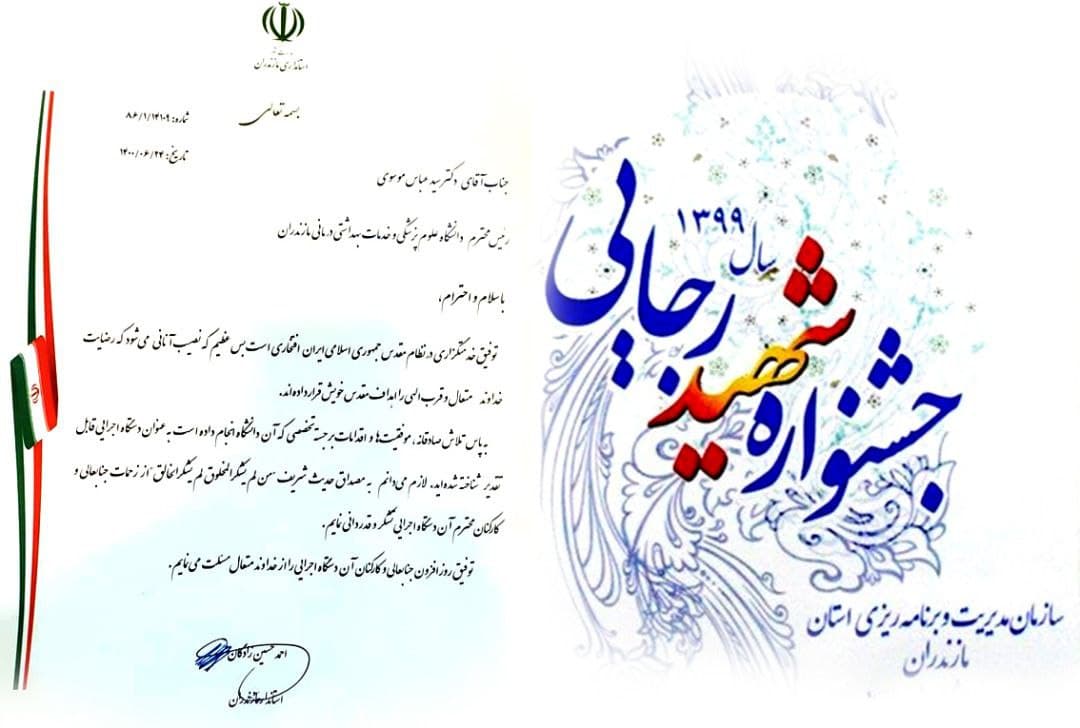 استانداری مازندران
بسمه تعالی
شماره: ۸۶/۱/۱۴۱۰۹
تاریخ: ۱۴۰۰/۰۶/۲۴
جناب آقای دکتر سید عباس موسوی
رئیس محترم دانشگاه علوم پزشکی و خدمات بهداشتی درمانی مازندران
با سلام و احترام،
توفیق خدمتگزاری در نظام مقدس جمهوری اسلامی ایران افتخاری است بس عظیم که نصیب آنانی می شود که رضایت
خداوند متعال و قرب الهی را اهداف مقدس خویش قرار داده اند.
به پاس تلاش صادقانه، موفقیت ها و اقدامات برجسته تخصصی که آن دانشگاه انجام داده است به عنوان دستگاه اجرایی قابل
تقدیر شناخته شده اید، لازم می دانم به مصداق حدیث شریف "من لم یشکر المخلوق لم یشکر الخالق" از زحمات جنابعالی و
کارکنان محترم آن دستگاه اجرایی تشکر و قدردانی نمایم.
توفیق روز افزون جنابعالی و کارکنان آن دستگاه اجرایی را از خداوند متعال مسئلت می نمایم.
احمد حسین زادگان
استاندار مازندران
جشنواره شهید رجایی
سال ۱۳۹۹
سازمان مدیریت و برنامه ریزی استان
مازندران